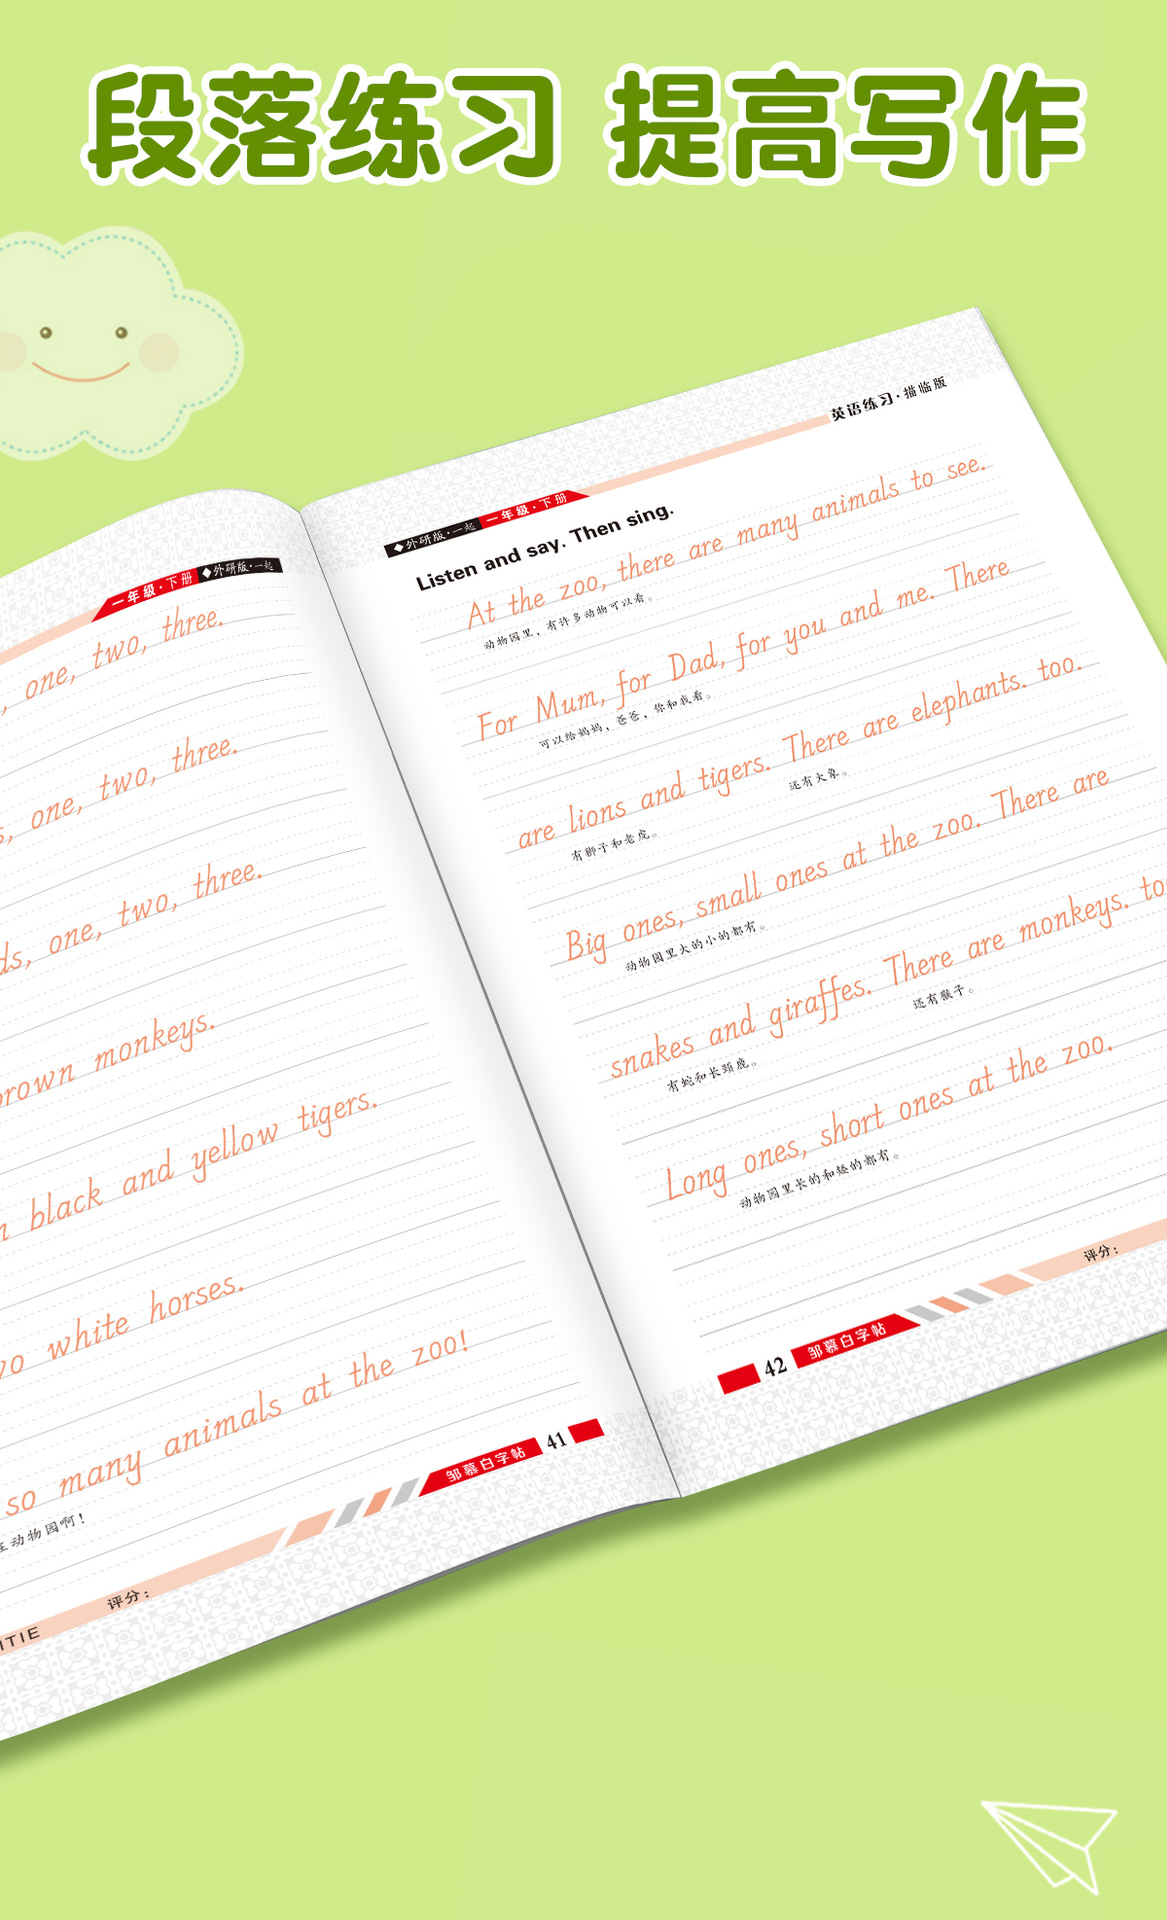 段落练习 提高写作
一年级·下册 ◆外研版·一起
one, two, three.
one, two, three.
one, two, three.
brown monkeys.
black and yellow tigers.
white horses.
so many animals at the zoo!
在动物园啊！
邹慕白字帖 41
评分：
外研版·一起 一年级·下册
英语练习·描临版
Listen and say. Then sing.
At the zoo, there are many animals to see.
动物园里，有许多动物可以看。
For Mum, for Dad, for you and me. There
可以给妈妈，爸爸，你和我看。
are lions and tigers. There are elephants. too.
有狮子和老虎。 还有大象。
Big ones, small ones at the zoo. There are
动物园里大的小的都有。
snakes and giraffes. There are monkeys. too
有蛇和长颈鹿。 还有猴子。
Long ones, short ones at the zoo.
动物园里长的和矮的都有。
评分：
42 邹慕白字帖